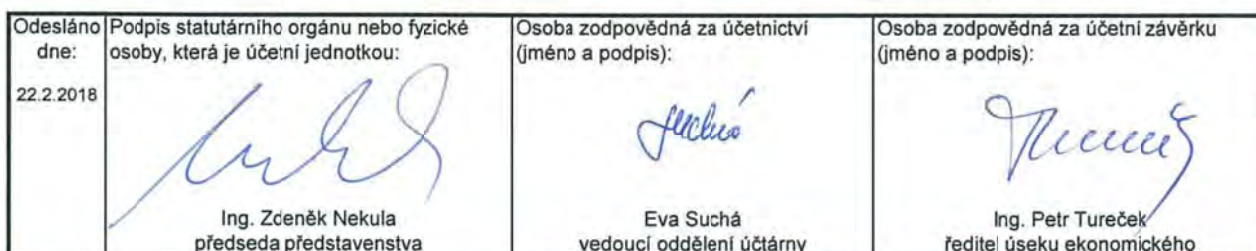 Odesláno dne:
22.2.2018
Podpis statutárního orgánu nebo fyzické
osoby, která je účetní jednotkou:
Ing. Zdeněk Nekula
předseda představenstva
Osoba zodpovědná za účetnictví
(jméno a podpis):
Suchá
Eva Suchá
vedoucí oddělení účtárny
Osoba zodpovědná za účetní závěrku
(jméno a podpis):
Ing. Petr Tureček
ředitel úseku ekonomického